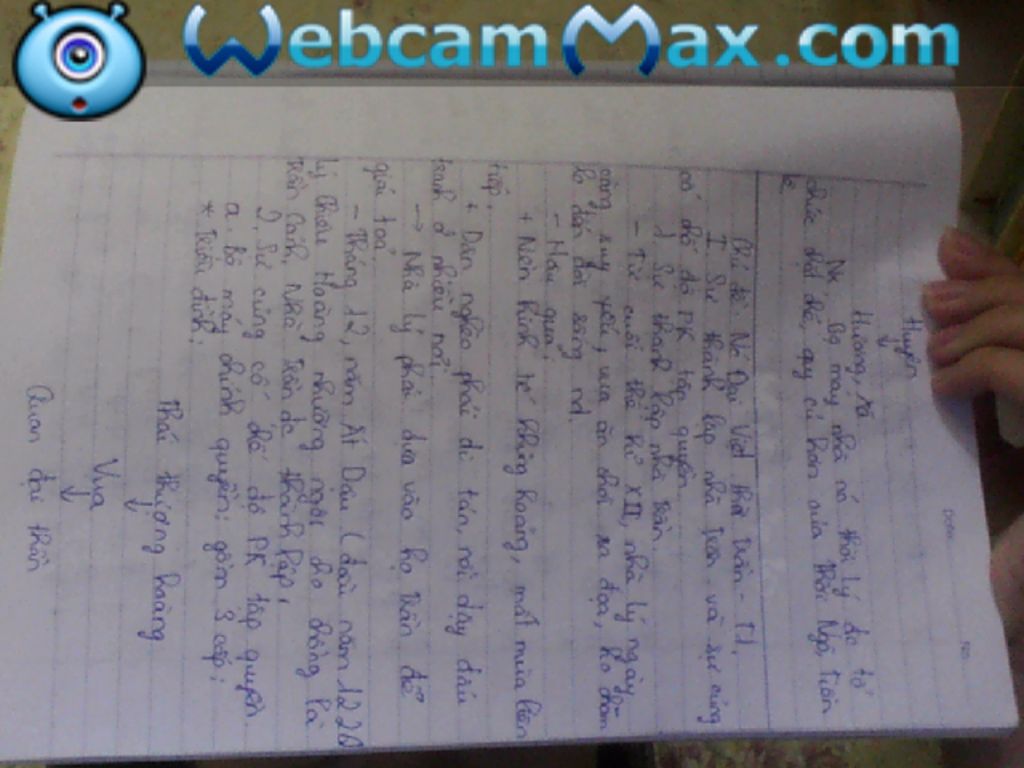 WebcamMax.com
Date No.
Huyện
↓
Hương, xã
NX: Bộ máy nhà nó thời lý đc tổ
chức chặt chẽ, quy củ hơn
thời Ngô, Tiền
lê
Chủ đề: Nc Đại Việt thời Trần - 
I. Sự thành lập nhà Trần và sự củng
cố chế độ PK tập quyền.
1. Sự thành lập nhà Trần.
- Từ cuối thế kỉ XII, nhà lý ngày
càng suy yếu, vua ăn chơi sa đọa, ko chăm
lo đến đời sống nd.
- Hậu quả:
+ Nền kinh tế khủng hoảng, mất mùa liên
tiếp.
+ Dân nghèo phải di tán, nổi dậy đấu
tranh ở nhiều nơi.
→ Nhà lý phải dựa vào họ Trần để
giải toả.
- Tháng 12, năm Ất Dậu (đầu năm 1226)
lý Chiêu Hoàng nhường ngôi cho chồng là
Trần Cảnh. Nhà Trần đc thành lập.
2. Sự củng cố chế độ PK tập quyền.
a. Bộ máy chính quyền: gồm 3 cấp:
* Triều đình:
Thái thượng hoàng
↓
Vua
↓
Quan đại thần